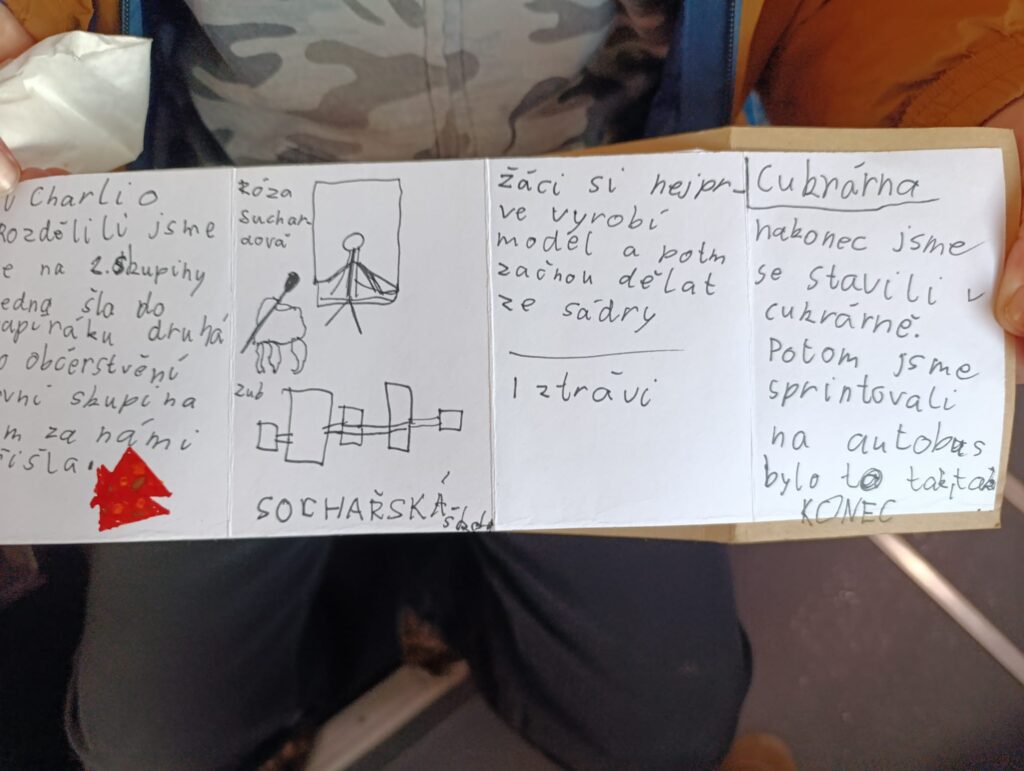 Charlio
Rozdělili jsme
e na 2.skupihy
edna šla do
apíráku druhá
o občerstvění
vní skupiha
m za námi
išla.
Róza
Suchar
dová
zub
SOCHAŘSKÁ
žáci si hejpr-
ve vyrobí
moděl a potm
začhou dělat
ze sádry
I ztrávi
Cukrárha
hakohec jsme
se stavili v
cukrárhě.
Potom jsme
sprintovali
na autobus
bylo to taktak
KONEC